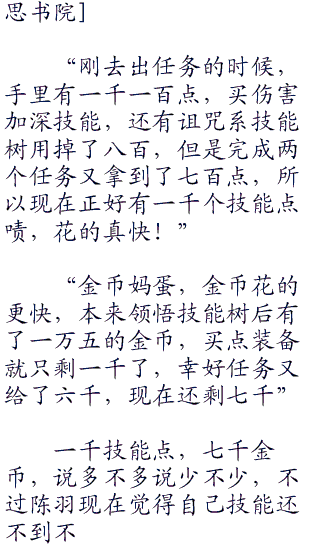 思书院]
“刚去出任务的时候，
手里有一千一百点，买伤害
加深技能，还有诅咒系技能
树用掉了八百，但是完成两
个任务又拿到了七百点，所
以现在正好有一千个技能点
啧，花的真快！”
“金币妈蛋，金币花的
更快，本来领悟技能树后有
了一万五的金币，买点装备
就只剩一千了，幸好任务又
给了六千，现在还剩七千”
一千技能点，七千金
币，说多不多说少不少，不
过陈羽现在觉得自己技能还
不到不